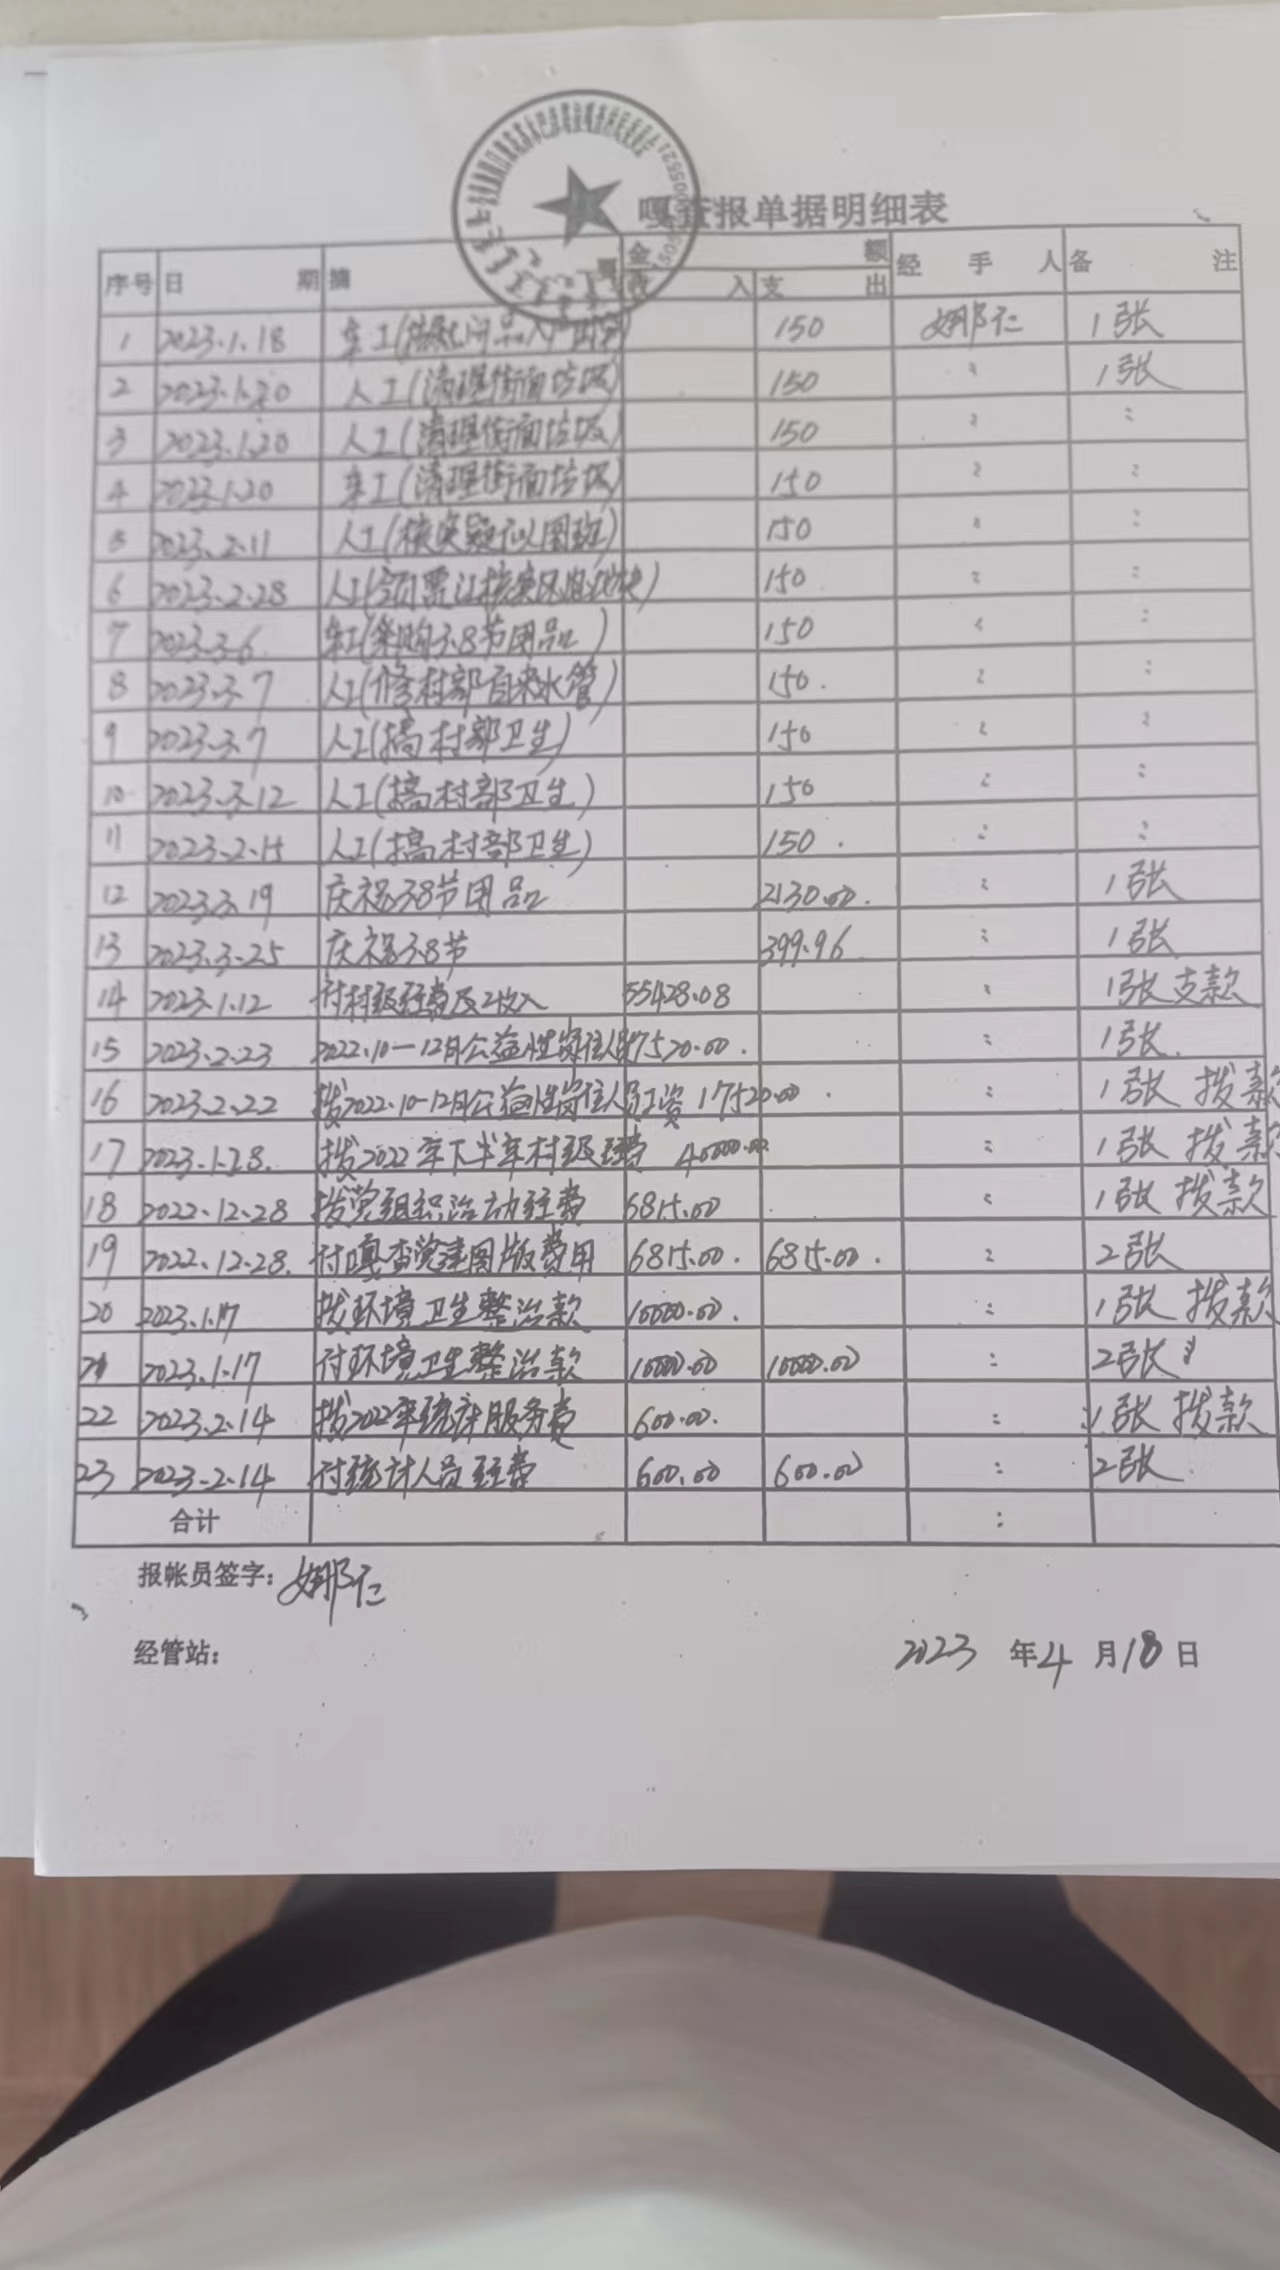 嘎查报单据明细表
序号 日期 摘 金额 经手人 备注
收入 支出
1 2023.1.18 车工( 150 娜仁 1张
2 2023.1.20 人工(清理街面垃圾) 150 〃 1张
3 2023.1.20 人工(清理街面垃圾) 150 〃 〃
4 2023.1.20 车工(清理街面垃圾) 150 〃 〃
5 2023.2.11 人工(核实疑似图斑) 150 〃 〃
6 2023.2.28 人工( 核实 150 〃 〃
7 2023.3.6 车工(采购3.8节用品) 150 〃 〃
8 2023.3.7 人工(修村部自来水管) 150. 〃 〃
9 2023.3.7 人工(搞村部卫生) 150 〃 〃
10 2023.3.12 人工(搞村部卫生) 150 〃 〃
11 2023.2.15 人工(搞村部卫生) 150. 〃 〃
12 2023.3.19 庆祝3.8节用品 2130.00. 〃 1张
13 2023.3.25 庆祝3.8节 399.96 〃 1张
14 2023.1.12 付村级经费及 收入 55428.08 〃 1张 支款
15 2023.2.23 2022.10-12月公益性岗位人员 17520.00. 〃 1张.
16 2023.2.22 拨2022.10-12月公益性岗位人员工资 17520.00 〃 1张 拨款
17 2023.1.28. 拨2022年下半年村级经费 40000.00 〃 1张 拨款
18 2022.12.28 拨党组织活动经费 6815.00 〃 1张 拨款
19 2022.12.28. 付嘎查党建图版费用 6815.00. 6815.00. 〃 2张
20 2023.1.17 拨环境卫生整治款 10000.00. 〃 1张 拨款
21 2023.1.17 付环境卫生整治款 10000.00 10000.00 〃 2张
22 2023.2.14 拨2022年统计服务费 600.00. 〃 1张 拨款
23 2023.2.14 付统计人员经费 600.00 600.00 〃 2张.
合计 〃
报帐员签字: 娜仁
经管站:
2023 年 4 月 18 日